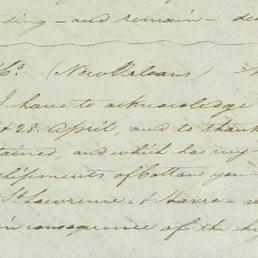 sing - and remain - de
Co. (New Orleans)
I have to acknowledge
& 28. April, and to thank
tained, and which has my
shipments of Cotton you
St Lawrence - & Havre -
in consequence of the h